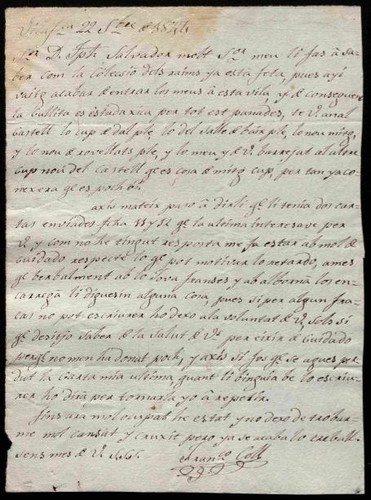 22 8bre de 1824
Sr. D. Jph Salvador molt Sor. meu li fas á sa-
ber com la colecció dels raims ya está feta, pues ayí
vaitg acabar de entrar los meus á esta vila, y de
la Cullita es estada rica per tot est panades, te
Castell lo cup de dal ple, lo del Salle de bax ple, lo nou mitg,
y lo nou de rovellats ple, y lo meu y de V. barrejat al altre
cup nou del Castell qe es cosa de mitg cup, per tan ya co-
nexera qe es poch vi.
axis mateix paso á dirli qe li tenta dos car-
tas enviades fcha y 12 qe la ultima interesave per
V. y com no he tingut resposta me fa estar ab molt de
cuidado respecte lo qe pot motivar lo retardo, ames
qe berbalment ab lo Nova franses y ab alberna los en-
carrega li diguesin alguna cosa, pues si per algun fra-
cas no pot escriurer ho dexo a la voluntat de V. sols si
qe desitjo saber de la salut de Vs. per exir de Cuidado
perqe no men ha donat poch, y axis si fos qe se agues per-
dut la carta mia ultima, quant li tinguia be lo escriu-
rer ho dira per tornarla yo á repetir.
fins ara molt ocupat he estat y no dexo de trobar-
me molt cansat y pero ya se acaba lo treball
sens mes de V. S.S.S.
Franco Coll